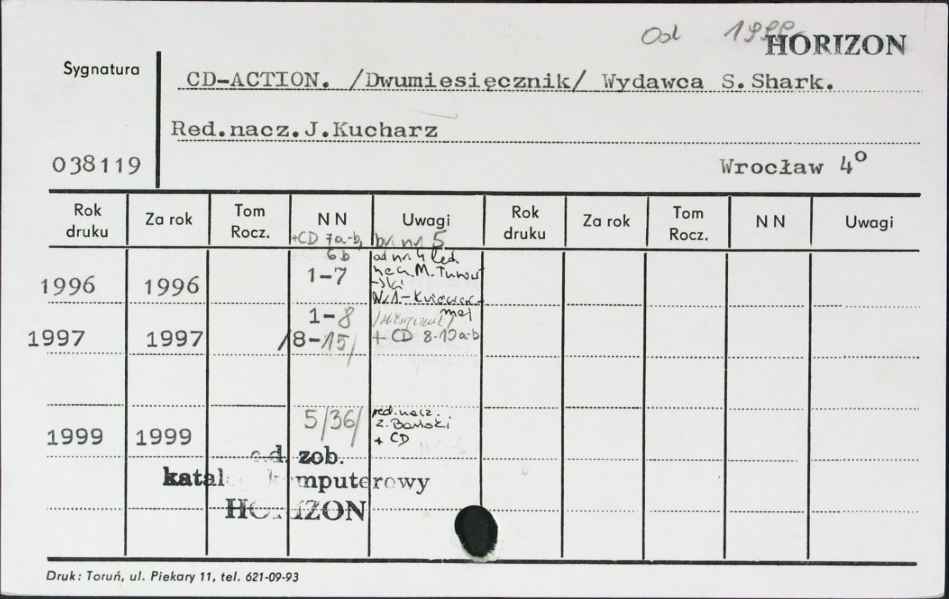 Od 1999
HORIZON
Sygnatura
CD-ACTION. /Dwumiesięcznik/ Wydawca S.Shark.
Red.nacz.J.Kucharz
038119
Wrocław 4°
Rok druku Za rok Tom Rocz. NN Uwagi Rok druku Za rok Tom Rocz. NN Uwagi
+CD 7a-b, br. nr 5
6b od nr 4 red.
1996 1996 1-7 nacz. M.
N.1-
1-8
1997 1997 /8-15/ + CD 8-15a-b
1999 1999 5/36/ red. nacz.
Z. Bański
+ CD
c.d. zob.
katal komputerowy
HORIZON
Druk: Toruń, ul. Piekary 11, tel. 621-09-93